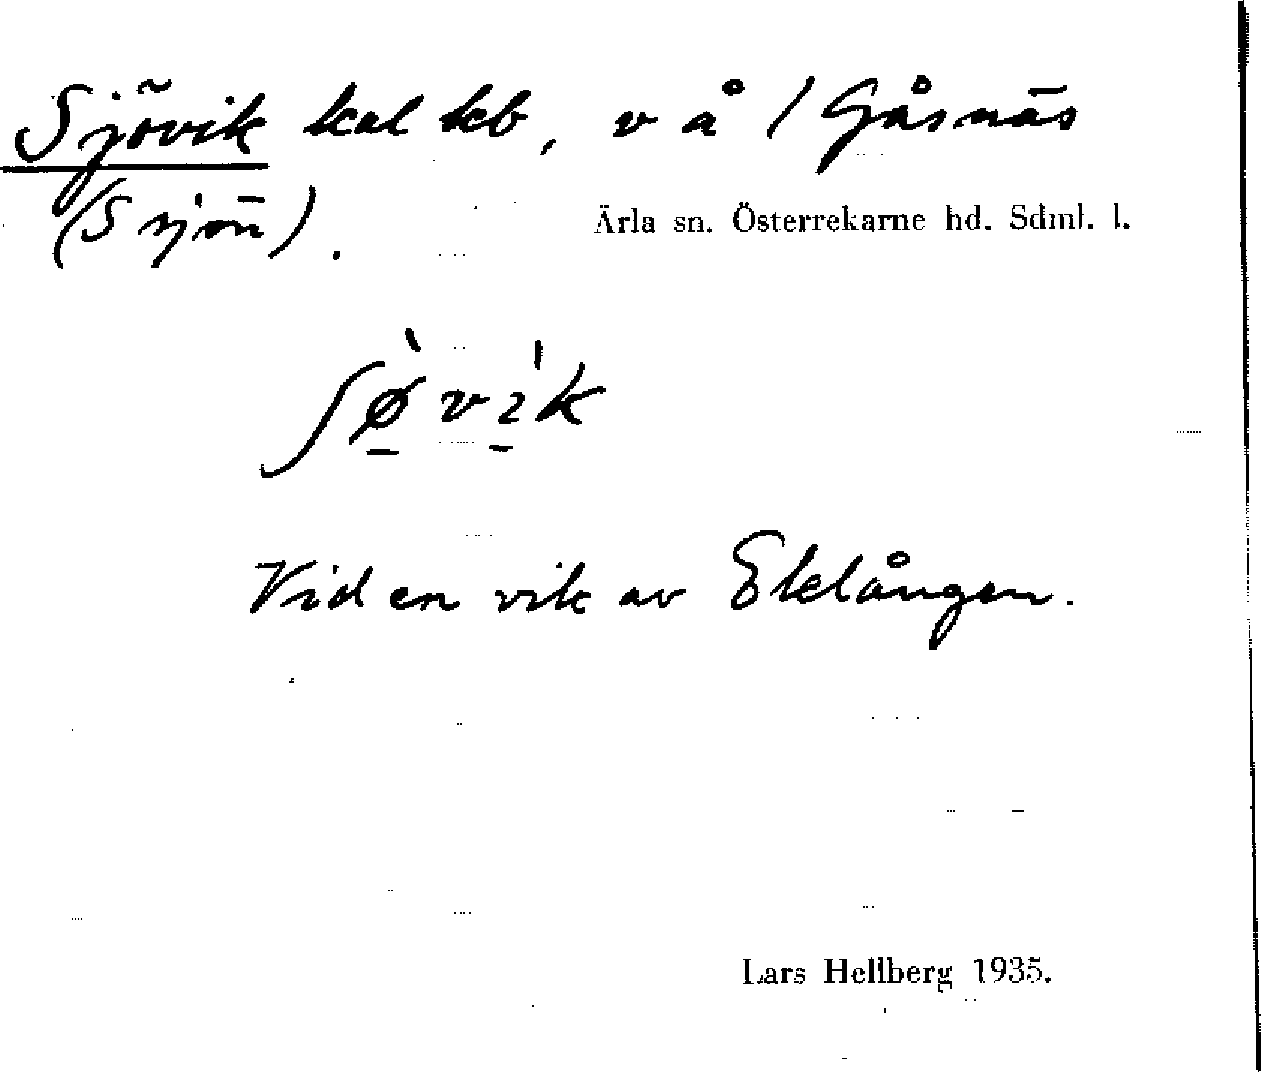 Sjövik kal lkb, v å / Gåsnäs
(S sjön).
Ärla sn. Österrekarne hd. Sdml. l.
ʃø̠̀vı̠ˈk
Vid en vik av Eklången.
Lars Hellberg 1935.